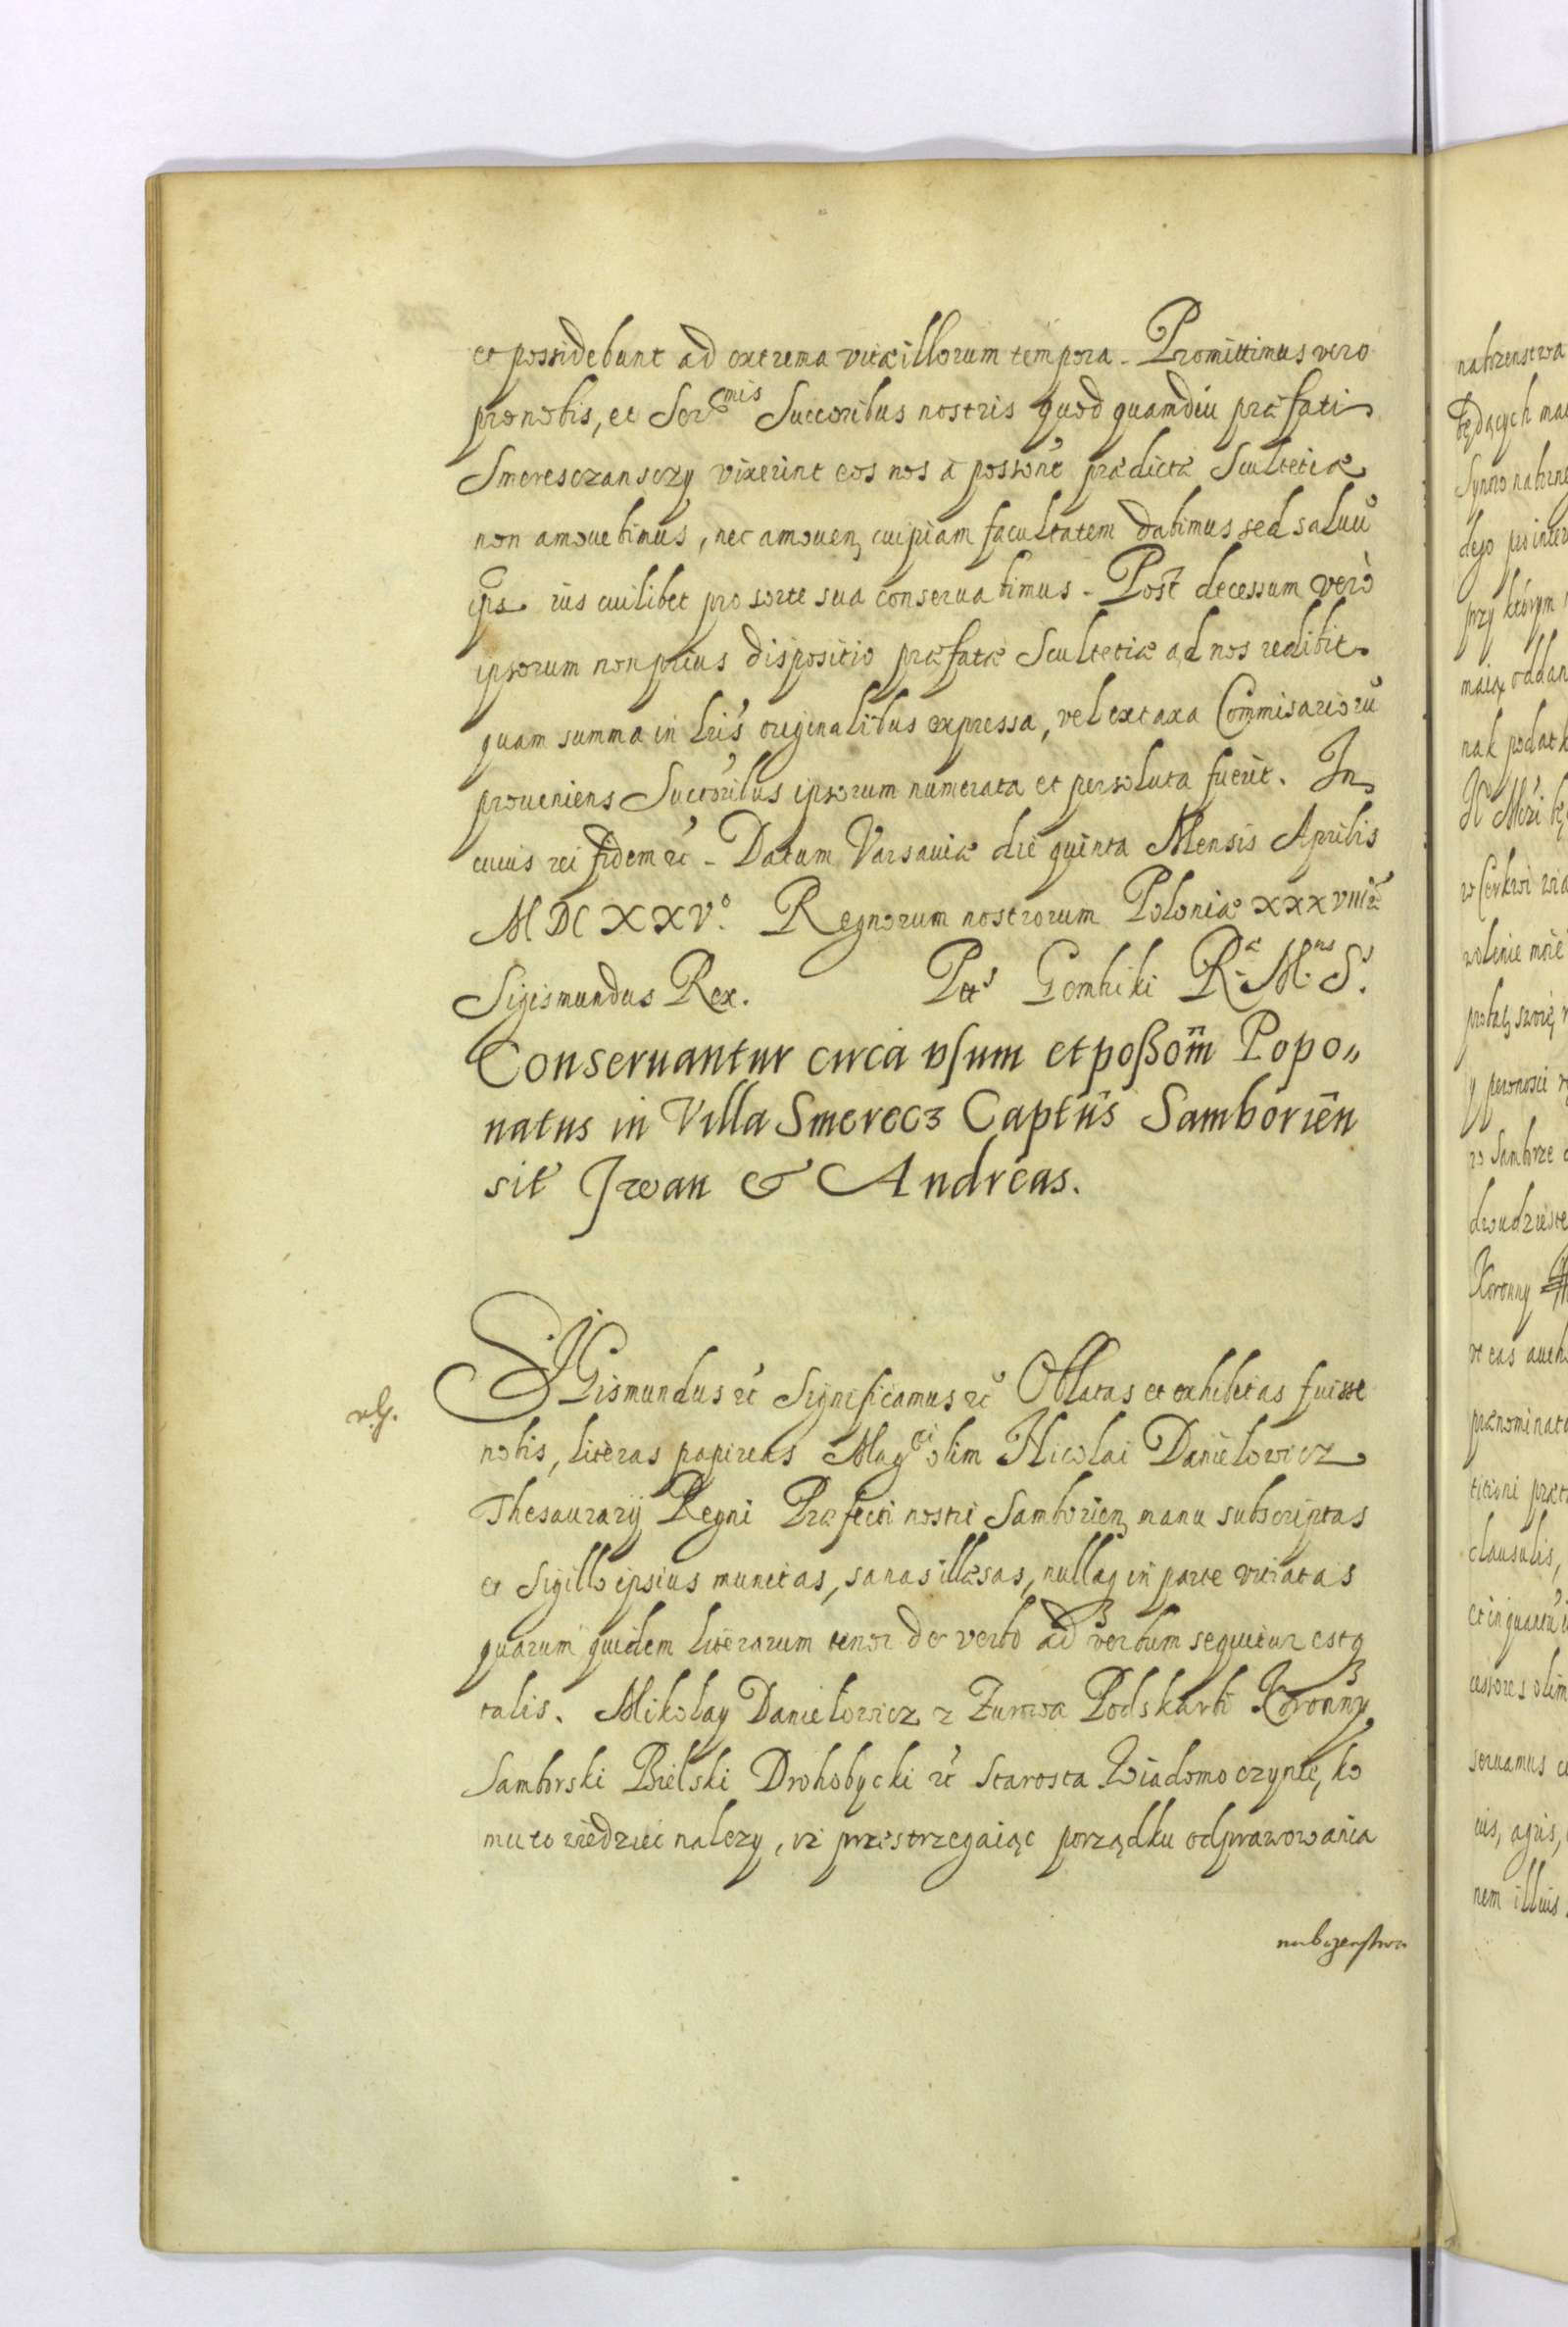 et possidebunt ad extrema vitæ illorum tempora. Promittimus vero
pro nobis, et Ser^mis Succoribus nostris quod quamdiu præfati
Smeresczansczy vixerint eos nos à possone prædictæ Scultetiæ
non amouebimus, nec amouen cuipiam facultatem dabimus sed saluu
ips ius cuilibet pro sorte sua conseruabimus. Post decessum verò
ipsorum non prius dispositio præfatæ Scultetiæ ad nos redibit
quam summa in lris originalibus expressa, vel ex taxa Commisarioru
proueniens Succoribus ipsorum numerata et persoluta fuerit. In
cuius rei fidem etc. Datum Varsauiæ die quinta Mensis Aprilis
MDCXXV° Regnorum nostrorum Poloniæ XXXVIII etc
Sigismundus Rex. Ptt^s Gembiki R^æ M^tis S^s
Conseruantur circa vsum et possom Popo„
natus in Villa Smerecz Captus Samborien
sit Iwan & Andreas.
SIGismundus etc Significamus etc Oblatas et exhibitas fuisse
nobis, literas papireas Mag^ci olim Nicolai Danielowicz
Thesaurarij Regni Præfecti nostri Samborien manu subscriptas
et Sigillo ipsius munitas, sanas illæsas, nullaq in parte vitiatas
quarum quidem literarum tenor de verbo ad verbum sequitur estq
talis. Mikołay Daniełowicz z Zurowa Podskarbi Koronny
Samborski Bielski Drohobycki etc Starosta Wiadomo czynię, ko
mu to wiedzieć nalezy, iz przestrzegaiąc porządku odprawowania
nabozenstwa
nabozenstwa
będących
dego
przy którym
maią oddan
w Cerkwi
y pewnosci
w Samborze
Koronny
clausulis,
nem illius